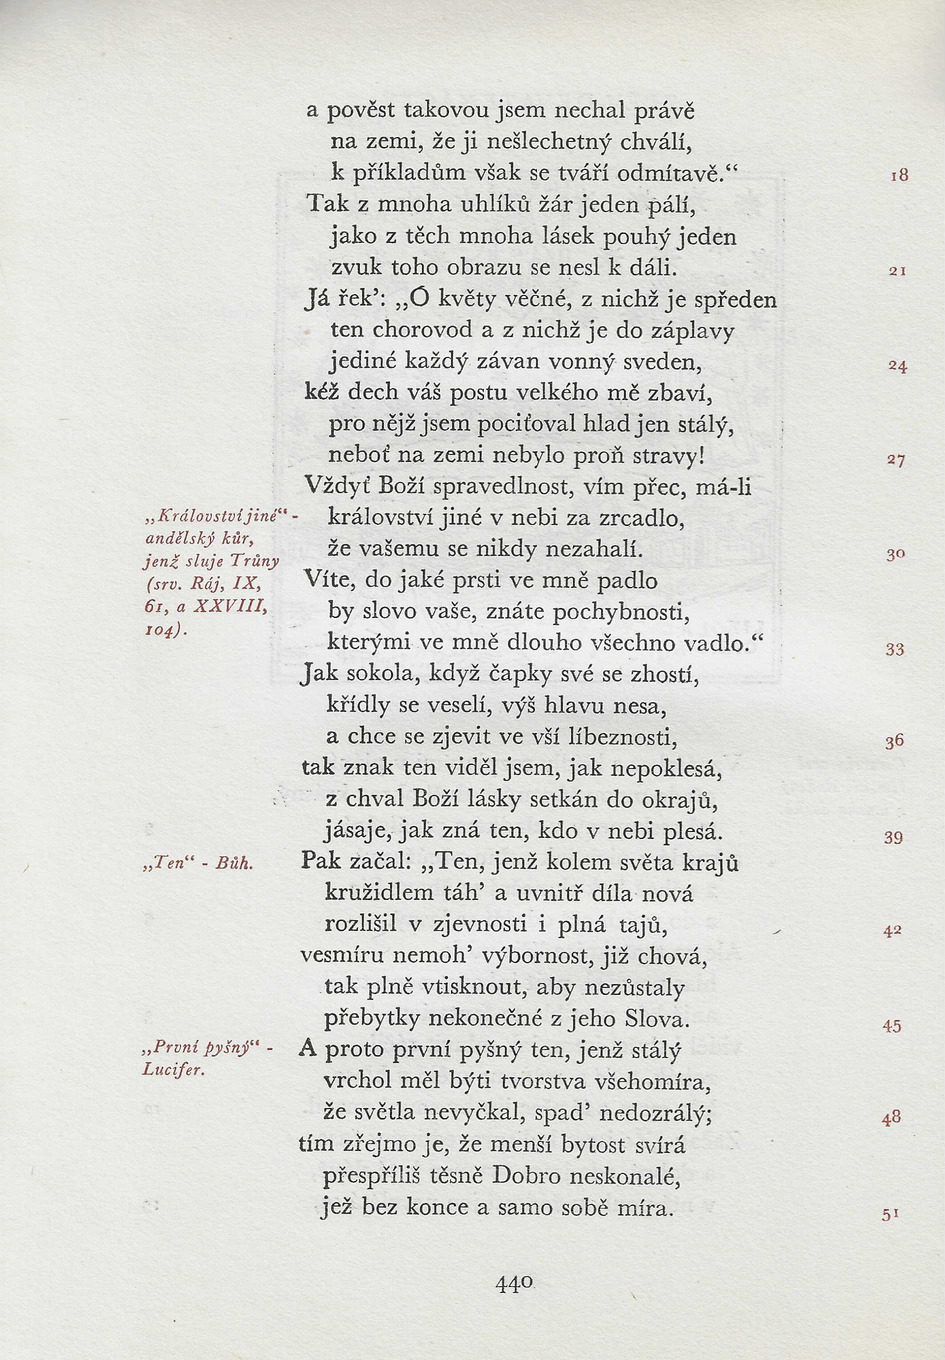 a pověst takovou jsem nechal právě
na zemi, že ji nešlechetný chválí,
k příkladům však se tváří odmítavě.“
18
Tak z mnoha uhlíků žár jeden pálí,
jako z těch mnoha lásek pouhý jeden
zvuk toho obrazu se nesl k dáli.
21
Já řek’: „Ó květy věčné, z nichž je spředen
ten chorovod a z nichž je do záplavy
jediné každý závan vonný sveden,
24
kéž dech váš postu velkého mě zbaví,
pro nějž jsem pociťoval hlad jen stálý,
neboť na zemi nebylo proň stravy!
27
Vždyť Boží spravedlnost, vím přec, má-li
království jiné v nebi za zrcadlo,
že vašemu se nikdy nezahalí.
30
„Království jiné“ -
andělský kůr,
jenž sluje Trůny
(srv. Ráj, IX,
61, a XXVIII,
104).
Víte, do jaké prsti ve mně padlo
by slovo vaše, znáte pochybnosti,
kterými ve mně dlouho všechno vadlo.“
33
Jak sokola, když čapky své se zhostí,
křídly se veselí, výš hlavu nesa,
a chce se zjevit ve vší líbeznosti,
36
tak znak ten viděl jsem, jak nepoklesá,
z chval Boží lásky setkán do okrajů,
jásaje, jak zná ten, kdo v nebi plesá.
39
„Ten“ - Bůh.
Pak začal: „Ten, jenž kolem světa krajů
kružidlem táh’ a uvnitř díla nová
rozlišil v zjevnosti i plná tajů,
42
vesmíru nemoh’ výbornost, již chová,
tak plně vtisknout, aby nezůstaly
přebytky nekonečné z jeho Slova.
45
„První pyšný“ -
Lucifer.
A proto první pyšný ten, jenž stálý
vrchol měl býti tvorstva všehomíra,
že světla nevyčkal, spad’ nedozrálý;
48
tím zřejmo je, že menší bytost svírá
přespříliš těsně Dobro neskonalé,
jež bez konce a samo sobě míra.
51
440